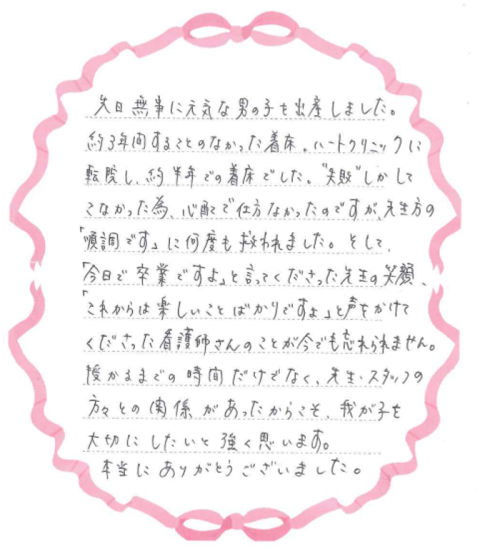 先日無事に元気な男の子を出産しました。
約3年間することのなかった着床。ハートクリニックに
転院し、約半年での着床でした。"失敗"しかして
こなかった為、心配で仕方なかったのですが、先生方の
「順調です」に何度も救われました。そして、
「今日で卒業ですよ」と言ってくださった先生の笑顔、
「これからは楽しいことばかりですよ」と声をかけて
くださった看護師さんのことが今でも忘れられません。
授かるまでの時間だけでなく、先生・スタッフの
方々との関係があったからこそ、我が子を
大切にしたいと強く思います。
本当にありがとうございました。